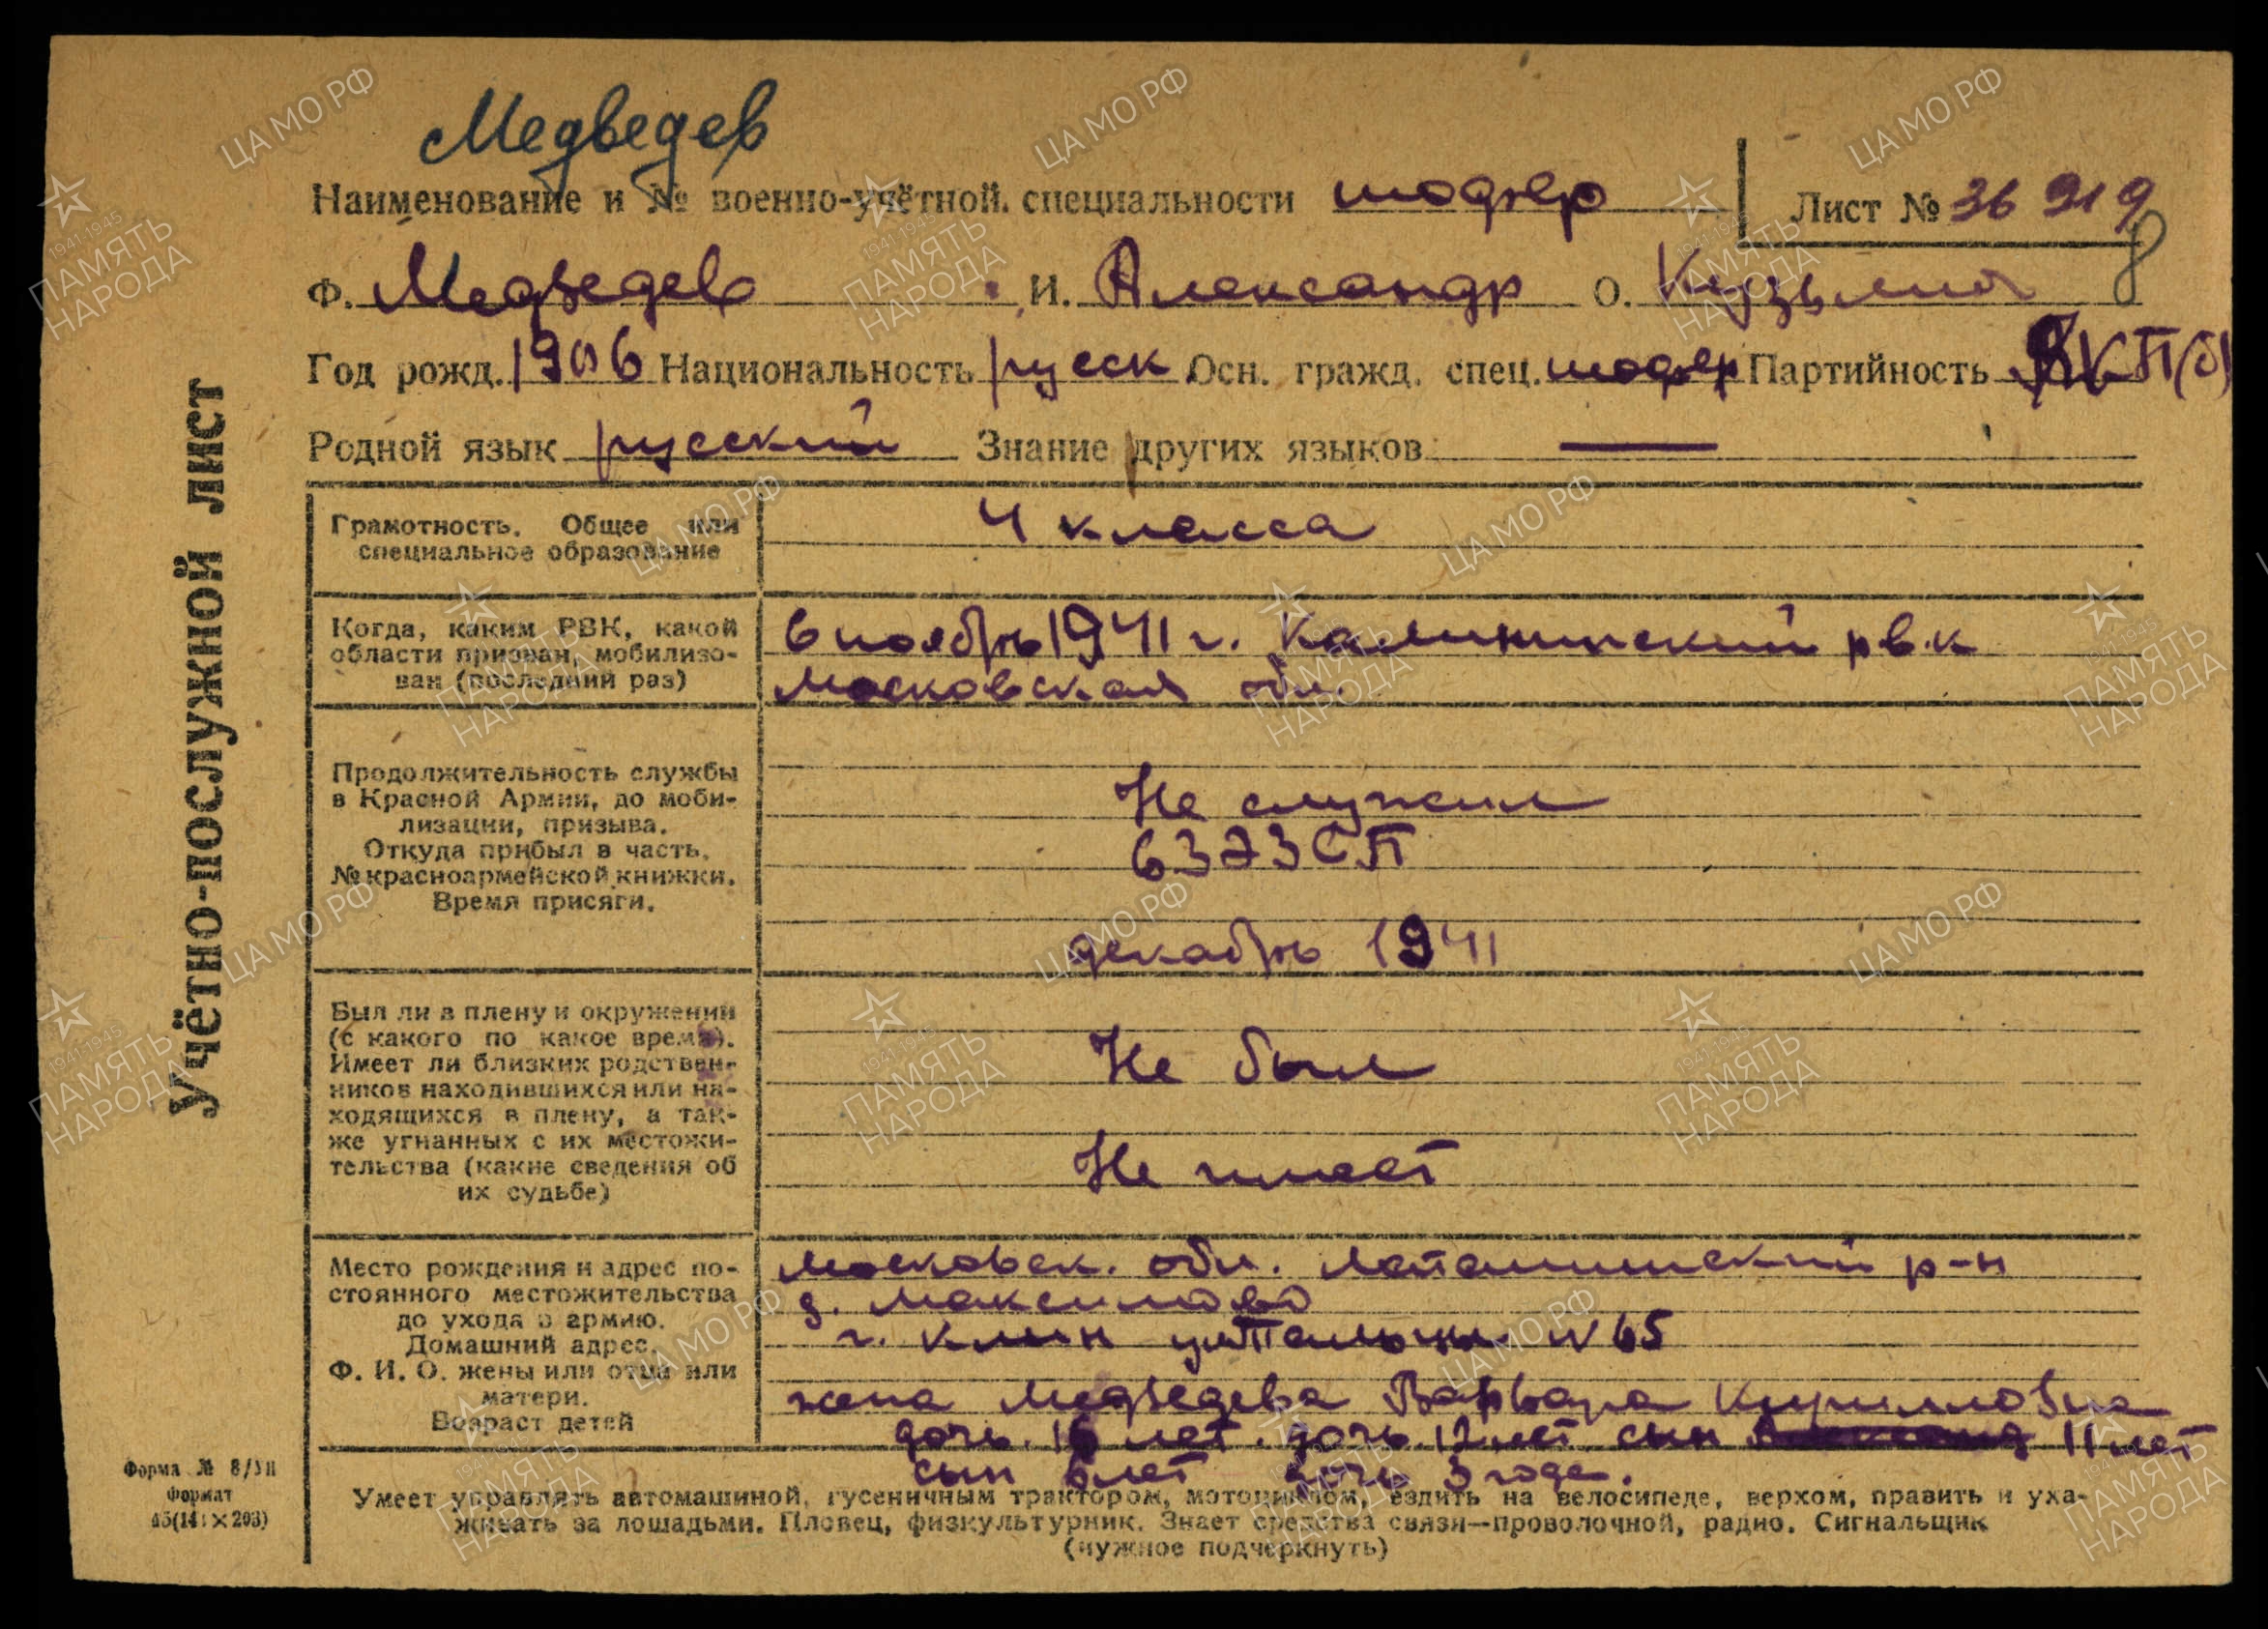 Медведев
Наименование и № военно-учётной специальности шофер Лист № 36919
8
Ф. Медведев И. Александр О. Кузьмич
Год рожд. 1906 Национальность русск Осн. гражд. спец. шофер Партийность ВКП(б)
Родной язык русский Знание других языков —
Учётно-послужной лист
Грамотность. Общее или специальное образование
4 класса
Когда, каким РВК, какой
области призван, мобилизо-
ван (последний раз)
6 ноябрь 1941 г. Калининский рвк
Московская обл.
Продолжительность службы
в Красной Армии, до моби-
лизации, призыва.
Откуда прибыл в часть.
№ красноармейской книжки.
Время присяги.
Не служил
637 ЗСП
декабрь 1941
Был ли в плену и окружении
(с какого по какое время).
Имеет ли близких родствен-
ников находившихся или на-
ходящихся в плену, а так-
же угнанных с их местожи-
тельства (какие сведения об
их судьбе)
Не был
Не имеет
Место рождения и адрес по-
стоянного местожительства
до ухода в армию.
Домашний адрес.
Ф. И. О. жены или отца или
матери.
Возраст детей
Московск. обл. Латашинский р-н
д. Максимово
г. Клин N 65
жена Медведева Варвара Кирилловна
дочь 16 лет. дочь 12 лет сын 11 лет
сын 6 лет дочь 3 года.
Умеет управлять автомашиной, гусеничным трактором, мотоциклом, ездить на велосипеде, верхом, править и уха-
живать за лошадьми. Пловец, физкультурник. Знает средства связи—проволочной, радио. Сигнальщик
(нужное подчеркнуть)
Форма № 8/УП
Формат
ЦАМО РФ
1941-1945
ПАМЯТЬ
НАРОДА